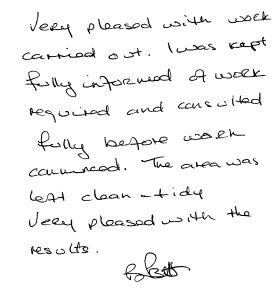 Very pleased with work
carried out. I was kept
fully informed of work
required and consulted
fully before work
commenced. The area was
left clean - tidy
Very pleased with the
results.